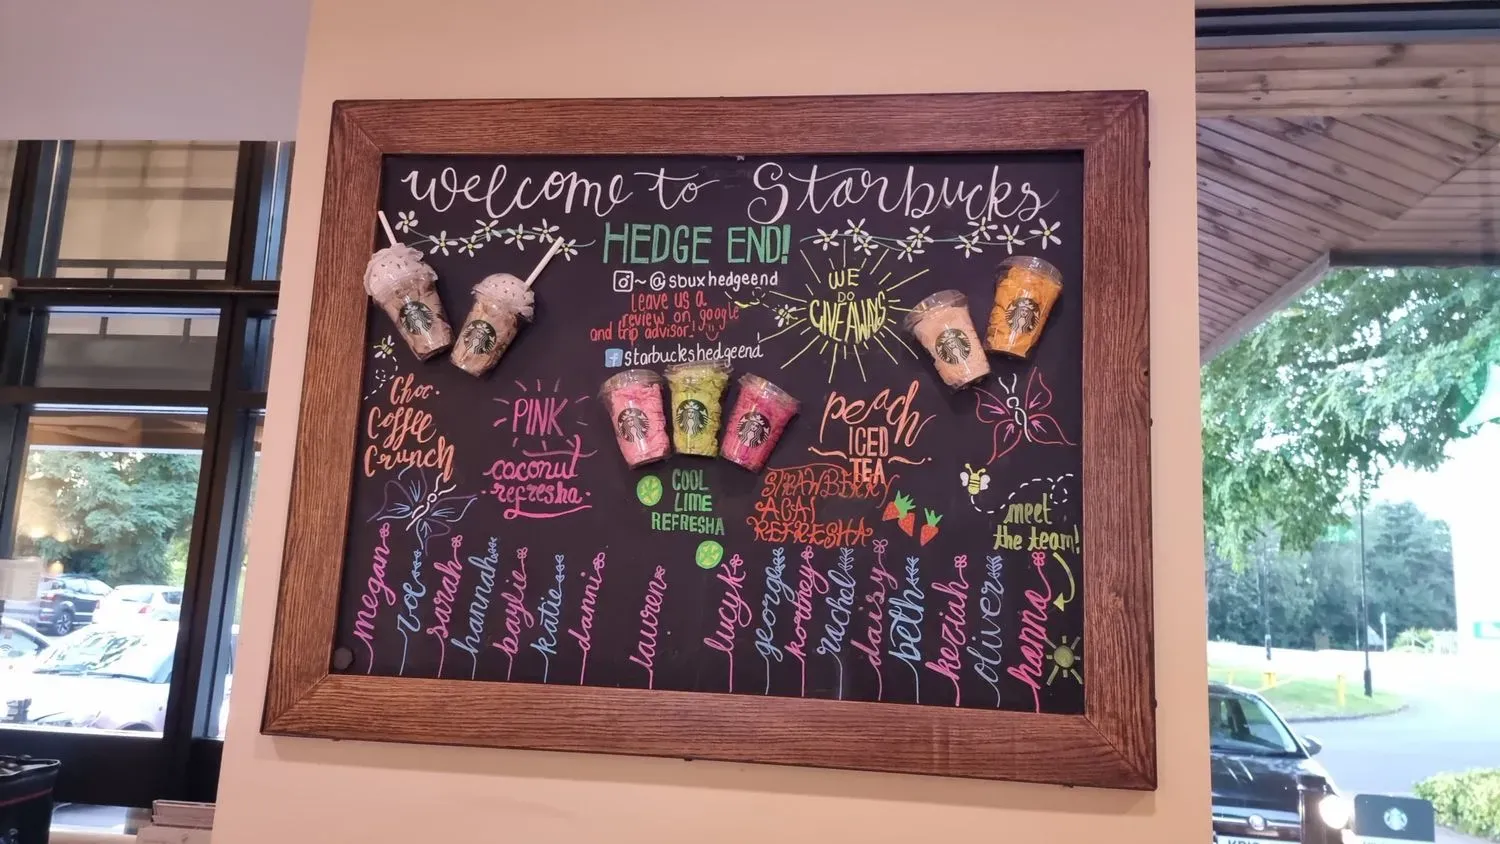 welcome to Starbucks
HEDGE END!
~ @sbuxhedgeend
leave us a
review on google
and trip advisor!
starbuckshedgeend
WE
DO
GIVEAWAYS
Choc.
Coffee
Crunch
PINK
coconut
refresha.
COOL
LIME
REFRESHA
peach
ICED
TEA
STRAWBERRY
ACAI
REFRESHA
meet
the team!
megan
zoe
sarah
hannah
baylie
katie
danni
lauren
lucy k
george
kortney
rachel
daisy
beth
keziah
oliver